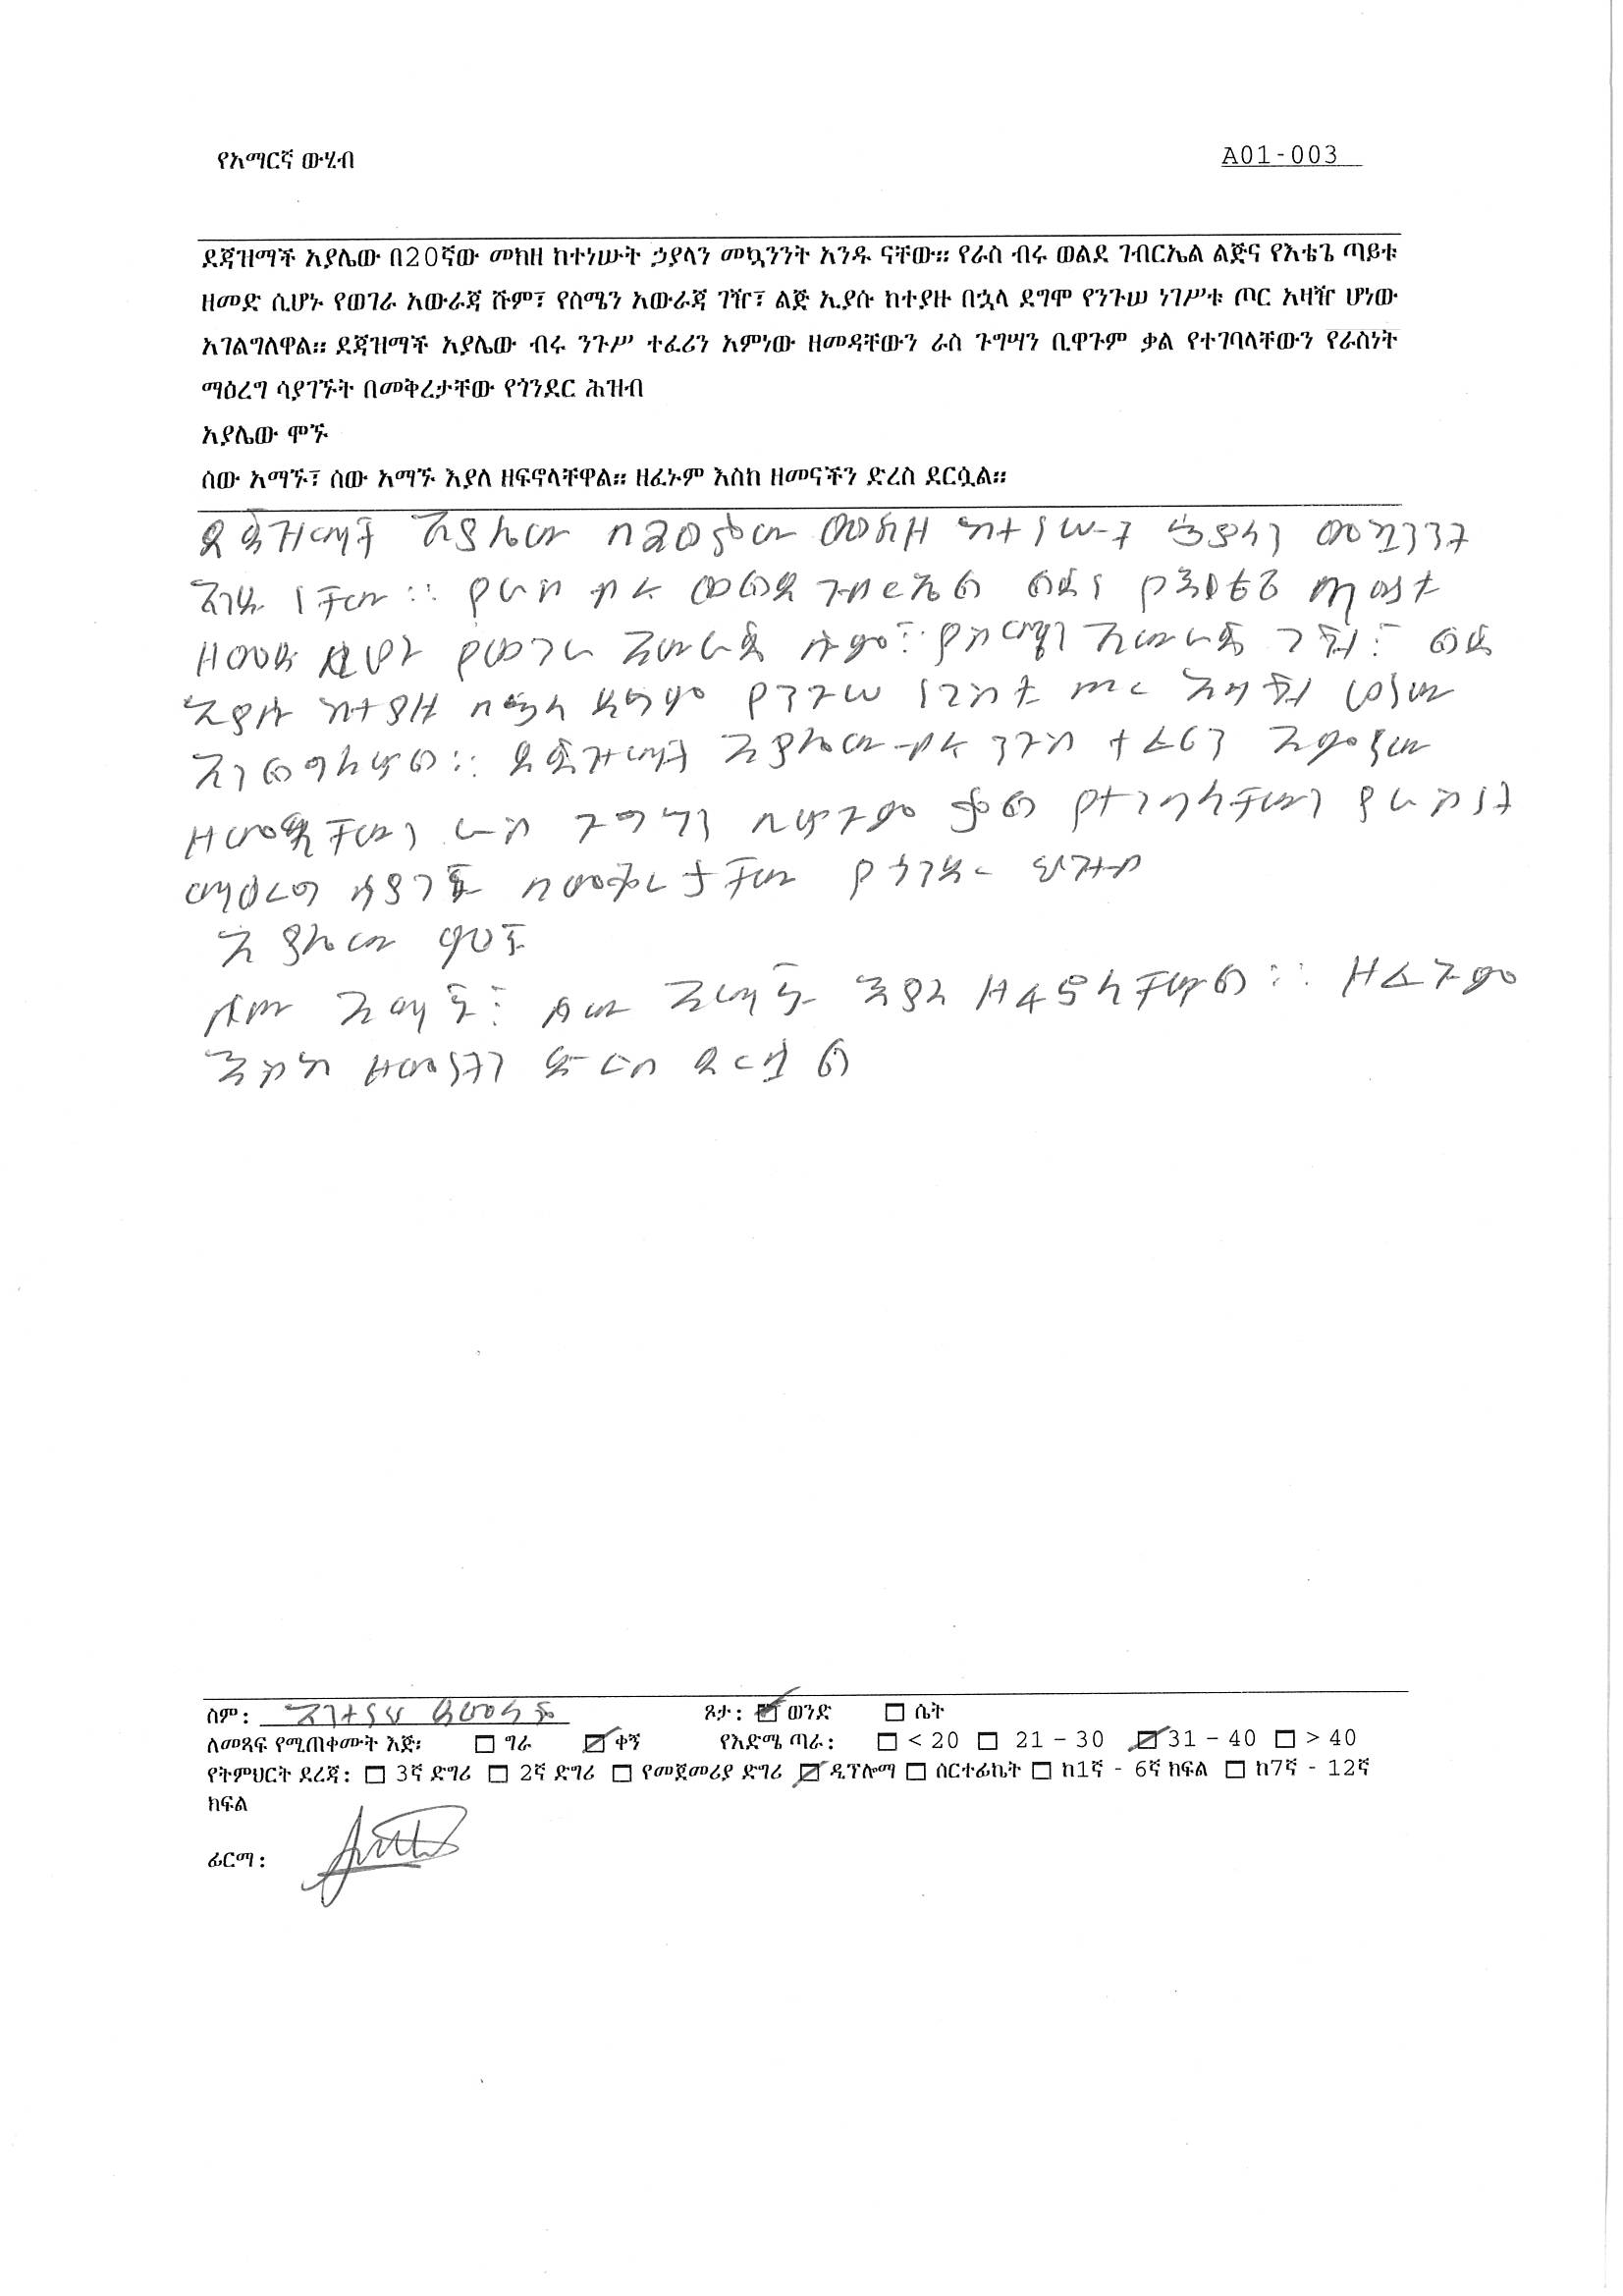 የአማርኛ ውሂብ
A01-003
ደጃዝማች አያሌው በ20ኛው መክዘ ከተነሡት ኃያላን መኳንንት አንዱ ናቸው። የራስ ብሩ ወልደ ገብርኤል ልጅና የእቴጌ ጣይቱ
ዘመድ ሲሆኑ የወገራ አውራጃ ሹም፣ የስሜን አውራጃ ገዥ፣ ልጅ ኢያሱ ከተያዙ በኋላ ደግሞ የንጉሠ ነገሥቱ ጦር አዛዥ ሆነው
አገልግለዋል። ደጃዝማች አያሌው ብሩ ንጉሥ ተፈሪን አምነው ዘመዳቸውን ራስ ጉግሣን ቢዋጉም ቃል የተገባላቸውን የራስነት
ማዕረግ ሳያገኙት በመቅረታቸው የጎንደር ሕዝብ
አያሌው ሞኙ
ሰው አማኙ፣ ሰው አማኙ እያለ ዘፍኖላቸዋል። ዘፈኑም እስከ ዘመናችን ድረስ ደርሷል።
ደጃዝማች አያሌው በ20ኛው መክዘ ከተነሡት ኃያላን መኳንንት
አንዱ ናቸው። የራስ ብሩ ወልደ ገብርኤል ልጅና የእቴጌ ጣይቱ
ዘመድ ሲሆኑ የወገራ አውራጃ ሹም፣ የስሜን አውራጃ ገዥ፣ ልጅ
ኢያሱ ከተያዙ በኋላ ደግሞ የንጉሠ ነገሥቱ ጦር አዛዥ ሆነው
አገልግለዋል። ደጃዝማች አያሌው ብሩ ንጉሥ ተፈሪን አምነው
ዘመዳቸውን ራስ ጉግሣን ቢዋጉም ቃል የተገባላቸውን የራስነት
ማዕረግ ሳያገኙ በመቅረታቸው የጎንደር ሕዝብ
አያሌው ሞኙ
ሰው አማኙ፣ ሰው አማኙ እያለ ዘፍኖላቸዋል። ዘፈኑም
እስከ ዘመናችን ድረስ ደርሷል
ስም: ጾታ: ወንድ ሴት
ለመጻፍ የሚጠቀሙት እጅ፡ ግራ ቀኝ የእድሜ ጣራ: < 20 21 – 30 31 – 40 > 40
የትምህርት ደረጃ: 3ኛ ድግሪ 2ኛ ድግሪ የመጀመሪያ ድግሪ ዲፕሎማ ሰርተፊኬት ከ1ኛ - 6ኛ ክፍል ከ7ኛ - 12ኛ
ክፍል
ፊርማ: